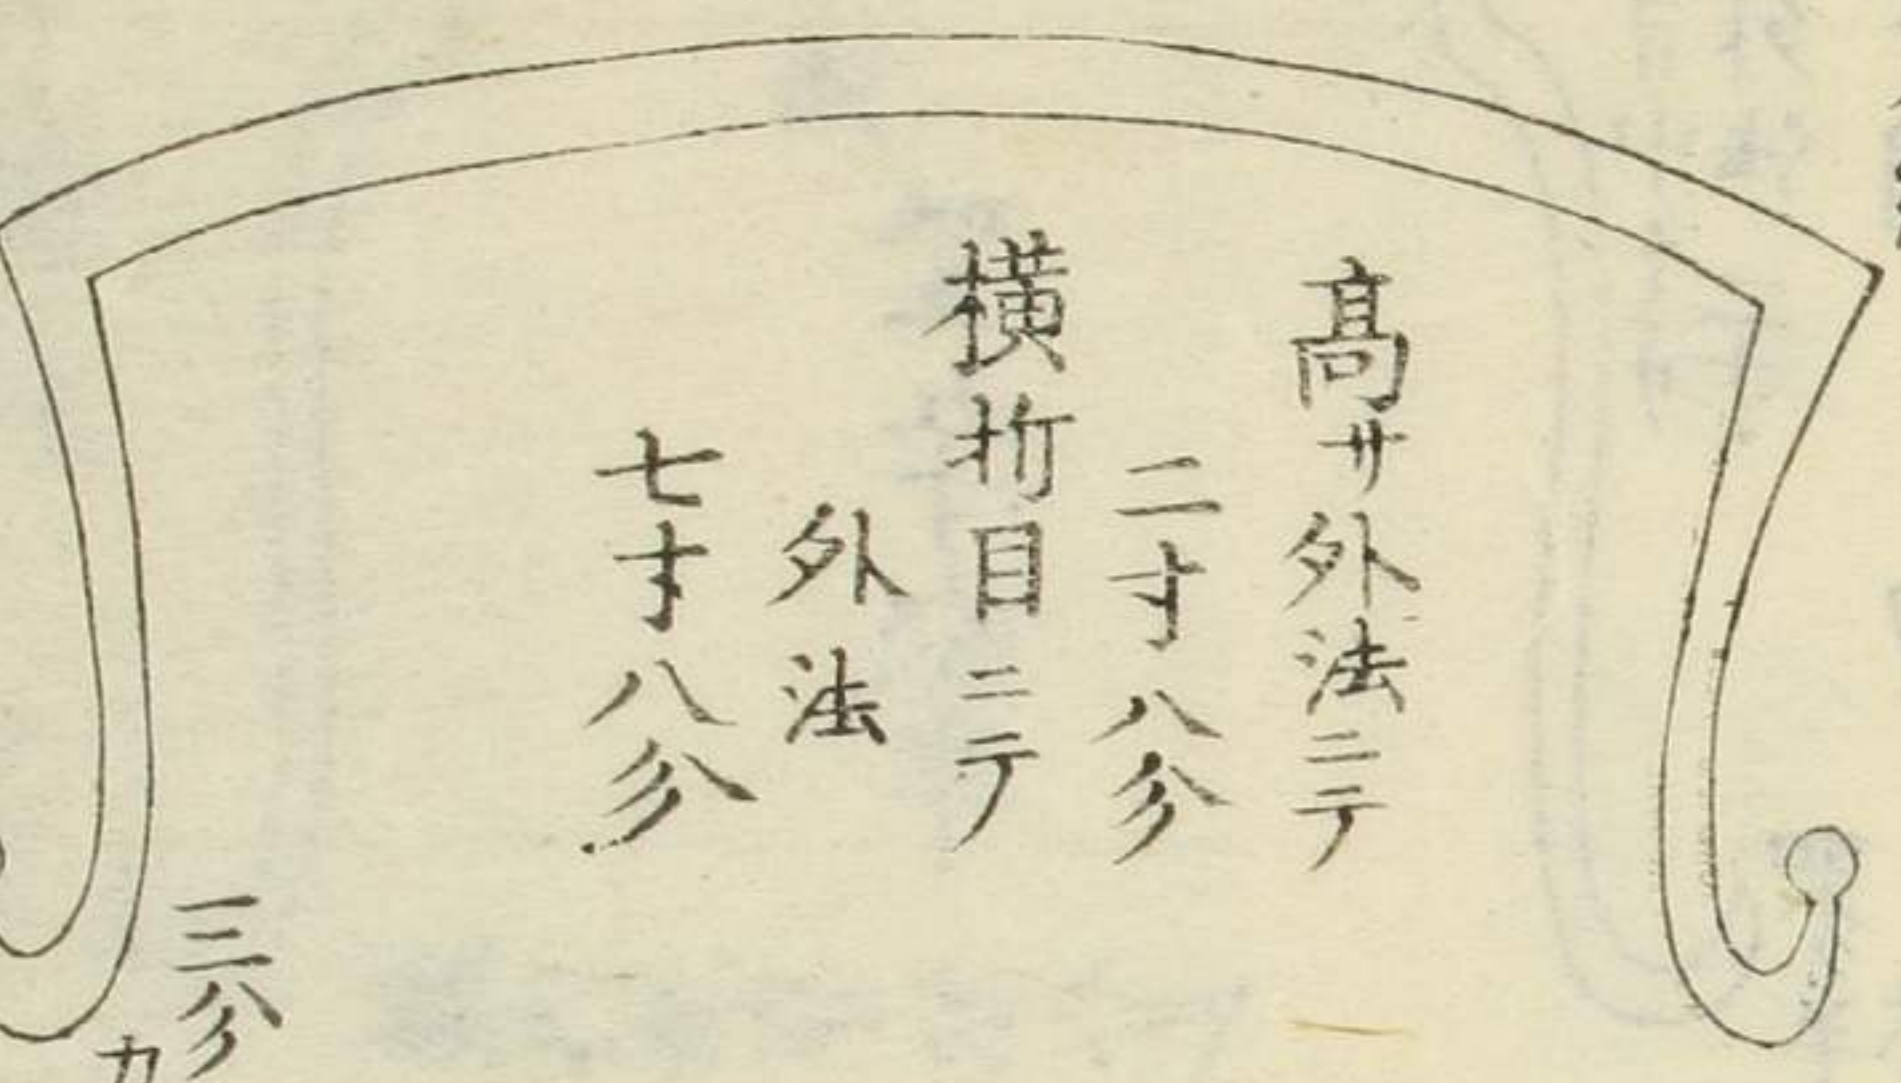 髙サ外法ニテ
二寸八分
横折目ニテ
外法
七寸八分
三分
カ